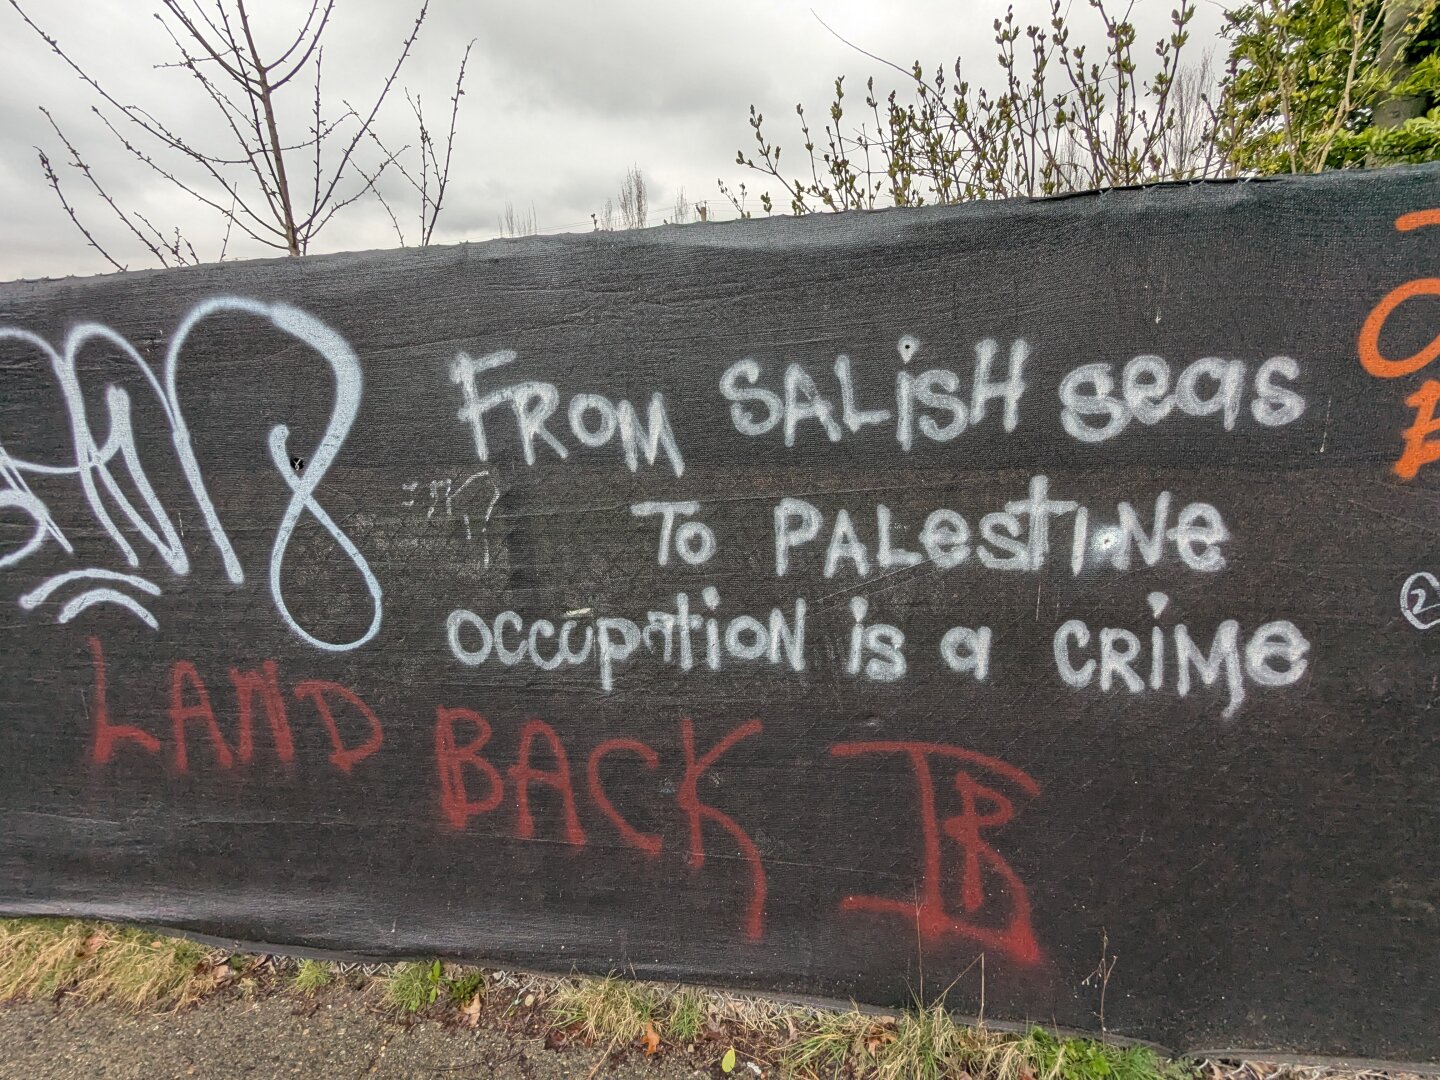 FROM SALiSH seas
TO PALesTiNe
occupation is a CRiMe
LAND BACK
2